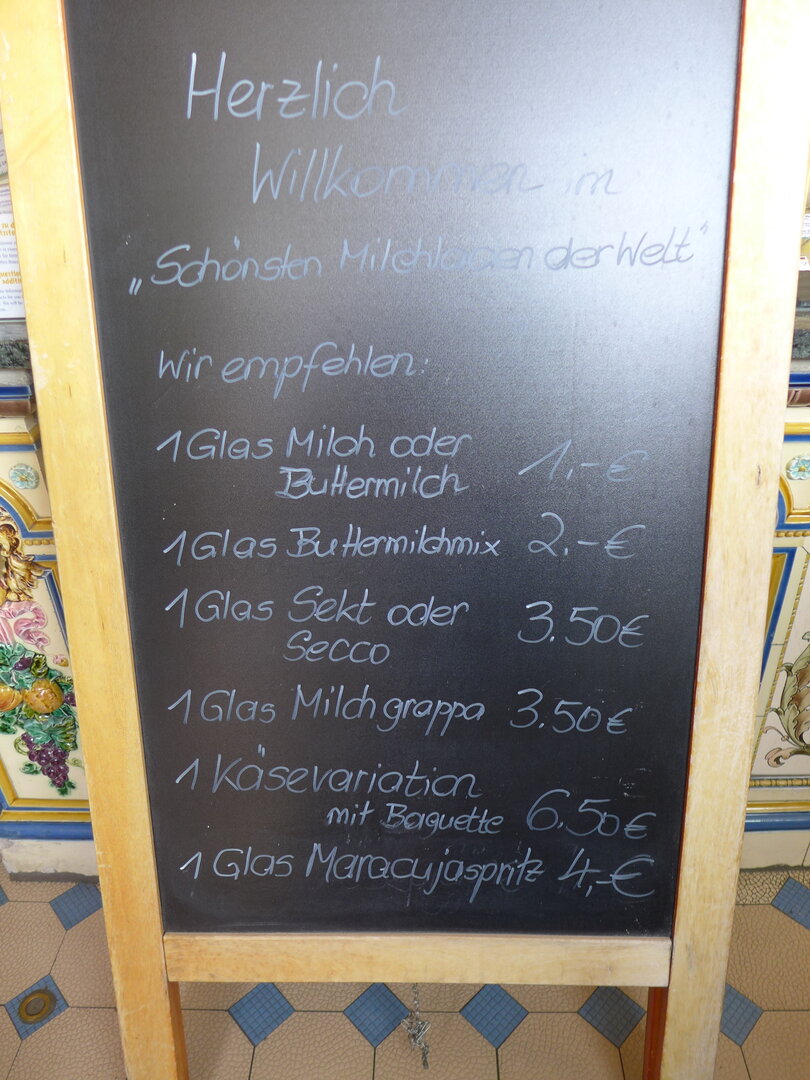 Herzlich
Willkommen im
„Schönsten Milchladen der Welt"
Wir empfehlen:
1 Glas Milch oder
Buttermilch 1,-€
1 Glas Buttermilchmix 2.-€
1 Glas Sekt oder
Secco 3.50€
1 Glas Milchgrappa 3.50€
1 Käsevariation
mit Baguette 6.50€
1 Glas Maracujaspritz 4,-€